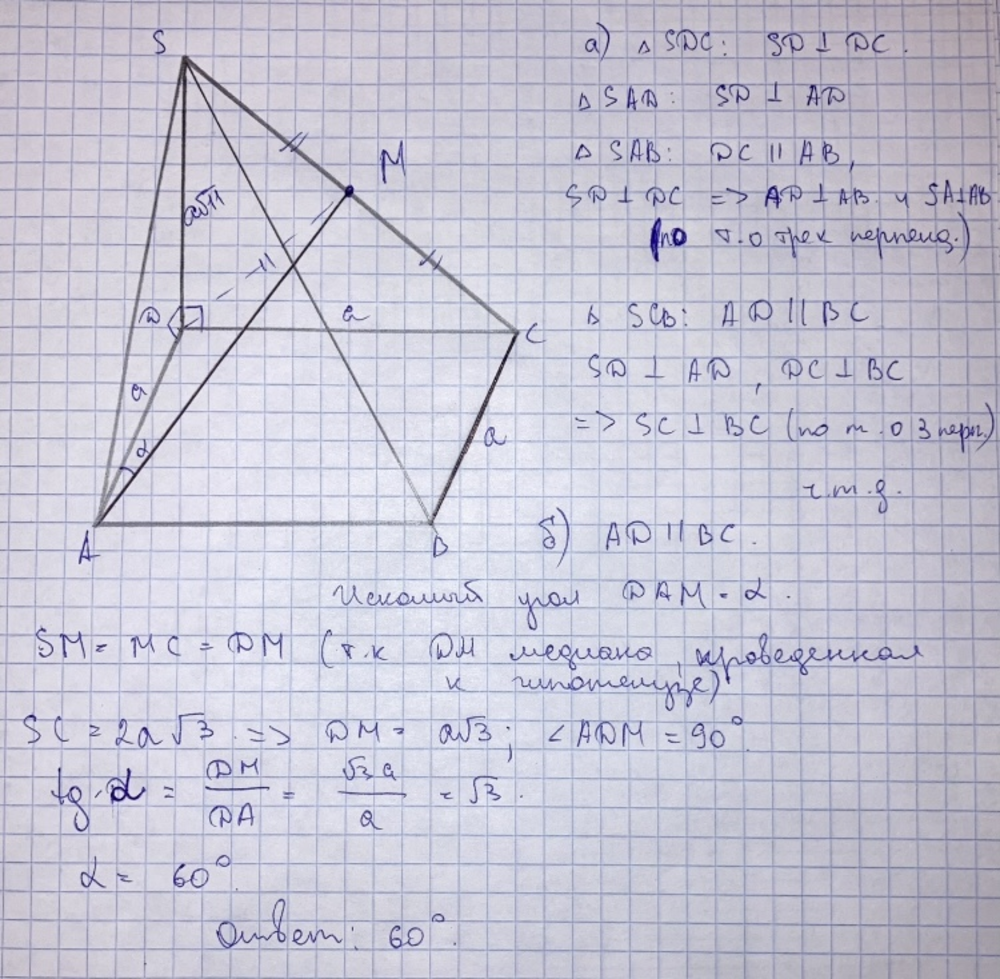 S
M
a√11
D
a
C
a
α
a
A
B
а) Δ SDC: SD ⊥ DC.
Δ SAD: SD ⊥ AD
Δ SAB: DC || AB,
SD ⊥ DC => AD ⊥ AB и SA⊥AB
(по т.о трех перпенд.)
Δ SCB: AD || BC
SD ⊥ AD, DC ⊥ BC
=> SC ⊥ BC (по т.о 3 перп.)
ч.т.д.
б) AD || BC.
Искомый угол DAM = α.
SM = MC = DM (т.к DM медиана, проведенная
к гипотенузе)
SC = 2a√3 => DM = a√3; ∠ADM = 90°.
tg α = DM/DA = √3a/a = √3.
α = 60°.
Ответ: 60°.